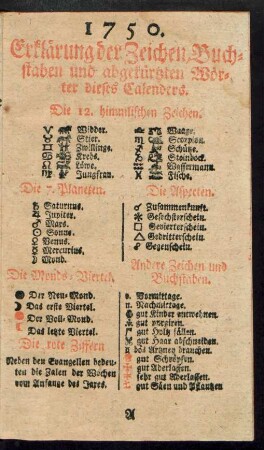 1750.
Erklärung der Zeichen, Buch-
staben und abgekürzten Wör-
ter dieses Calenders.
Die 12. himmlischen Zeichen.
♈ Widder.
♉ Stier.
♊ Zwillinge.
♋ Krebs.
♌ Löwe.
♍ Jungfrau.
♎ Waage.
♏ Scorpion.
♐ Schütze.
♑ Steinbock.
♒ Wassermann.
♓ Fische.
Die 7. Planeten.
♄ Saturnus.
♃ Jupiter.
♂ Mars.
☉ Sonne.
♀ Venus.
☿ Mercurius.
☽ Mond.
Die Aspecten.
☌ Zusammenkunft.
⚹ Gesechsterschein.
□ Gevierterschein.
△ Gedritterschein.
☍ Gegenschein.
Die Monds-Viertel.
Der Neu-Mond.
Das erste Viertel.
Der Voll-Mond.
Das letzte Viertel.
Die rote Ziffern
Neben den Evangelien bedeu-
ten die Zalen der Wochen
vom Anfange des Jares.
Andere Zeichen und
Buchstaben.
v. Vormittage.
n. Nachmittage.
gut Kinder entwehnen.
gut purgiren.
gut Holtz fällen.
gut Haar abschneiden.
das Artzney brauchen.
gut Schröpfen.
gut Aderlassen.
sehr gut Aderlassen.
gut Säen und Pflantzen
A